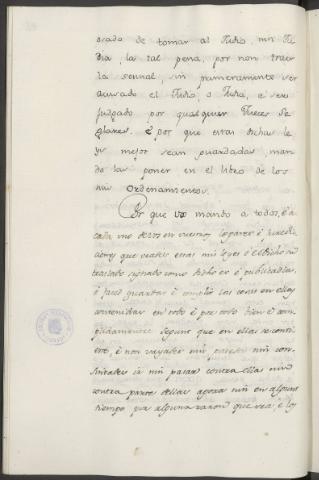 osada de tomar al Judio, nin Ju
dia, la tal pena, por non traer
la sennal, sin primeramente ser
acusado el Judio, o Judia, e ser
juzgado por qualquier Jueces Se
glares. E por que estas dichas le
yes mejor sean guardadas man
do las poner en el libro de los
mis Ordenamientos.
Por que vos mando a todos, é a
cada uno de vos en vuestros logares é
que veades estas mis leyes é el dicho su
traslado signado como dicho es é publicadlas,
é faced guardar é complir las cosas en ellas
contenidas en todo é por todo bien é com
plidamente segunt que en ellas se conti
ene, é non vayades nin pasedes nin con
sintades ir nin pasar contra ellas nin
contra parte dellas agora nin en algunt
tiempo por alguna razon que sea, é los